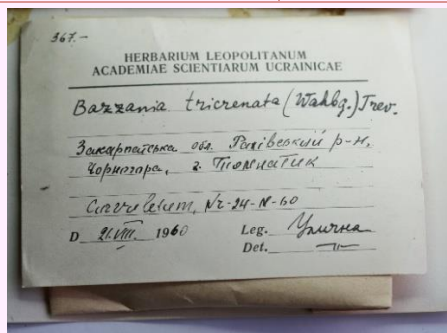 367.-
HERBARIUM LEOPOLITANUM
ACADEMIAE SCIENTIARUM UCRAINICAE
Bazzania tricrenata (Wahbg.) Trev.
Закарпатська обл. Рахівський р-н,
Чорногора, г.
D 21.VIII. 1960 Leg. Улична
Det. —"—